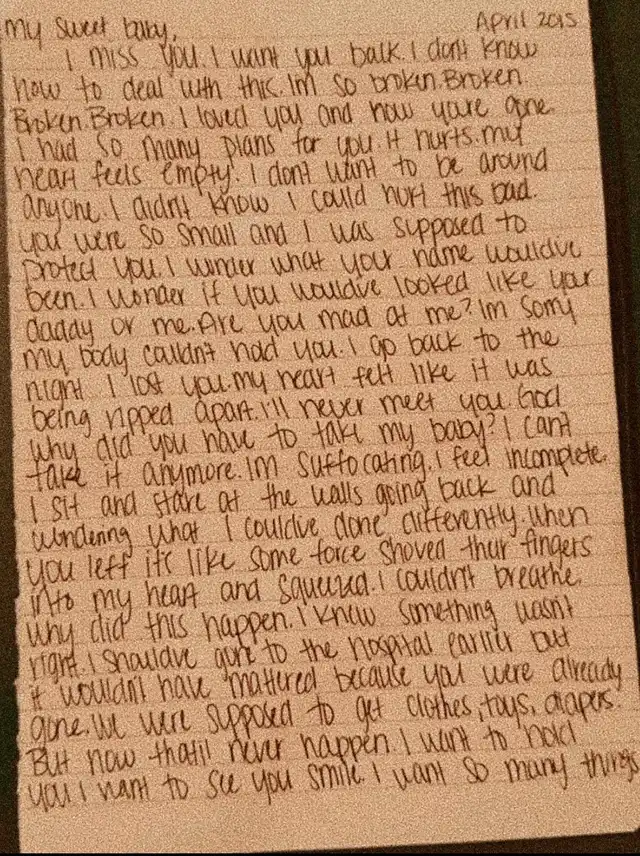 My sweet baby, April 2015
I miss you. I want you back. I don't know
how to deal with this. Im so broken. Broken
Broken. Broken. I loved you and now youre gone.
I had so many plans for you. It hurts. my
heart feels empty. I don't want to be around
anyone. I didn't know I could hurt this bad.
you were so small and I was supposed to
protect you. I wonder what your name wouldve
been. I wonder if you wouldve looked like your
daddy or me. Are you mad at me? Im sorry
my body couldn't hold you. I go back to the
night I lost you. my heart felt like it was
being ripped apart. I'll never meet you. God
why did you have to take my baby? I can't
take it anymore. Im suffocating. I feel incomplete.
I sit and stare at the walls going back and
wondering what I couldve done differently. When
you left it's like some force shoved their fingers
into my heart and squeezed. I couldn't breathe.
why did this happen. I knew something wasn't
right. I shouldve gone to the hospital earlier but
it wouldn't have mattered because you were already
gone. We were supposed to get clothes, toys, diapers.
But now that'll never happen. I want to hold
you I want to see you smile. I want so many things